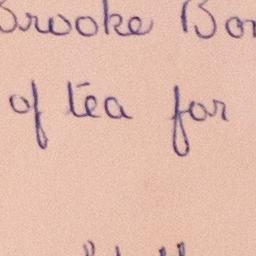 Brooke Bon
of tea for